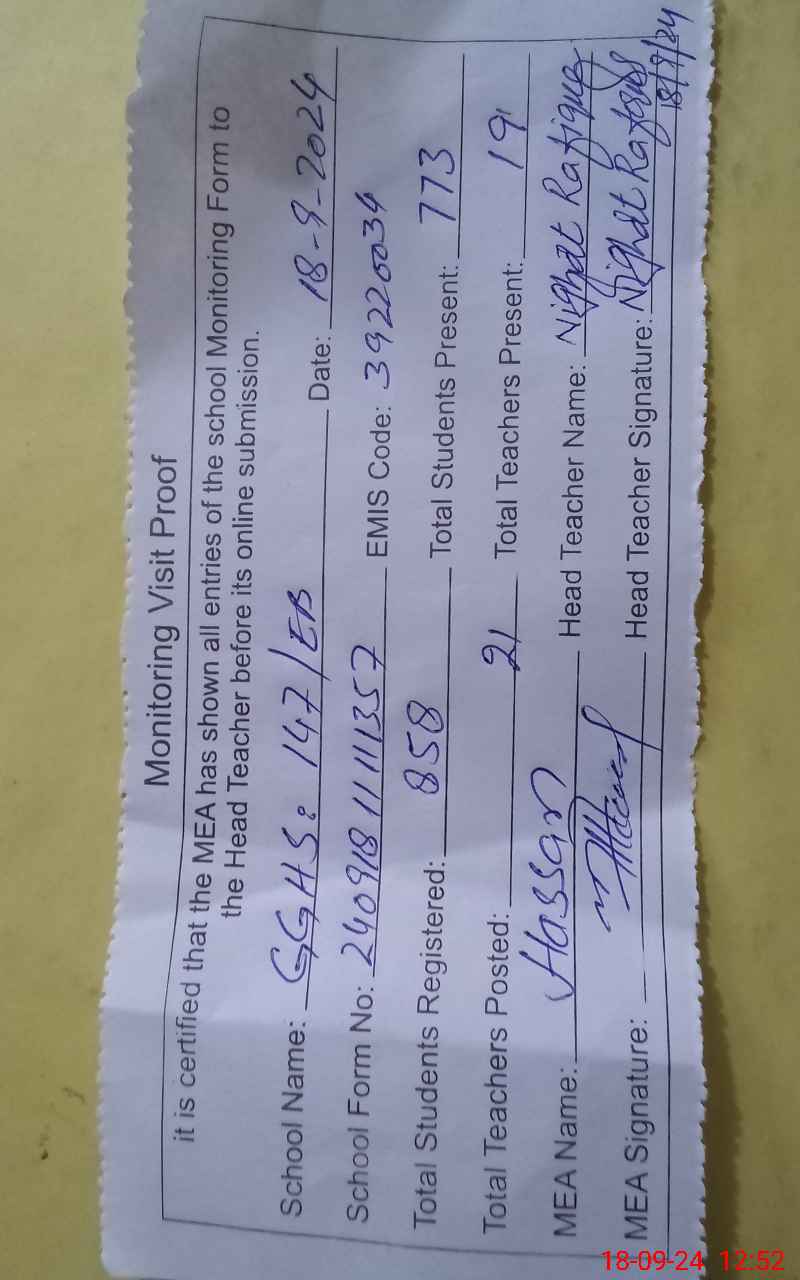 Monitoring Visit Proof
it is certified that the MEA has shown all entries of the school Monitoring Form to
the Head Teacher before its online submission.
School Name: GGHS: 147/EB Date: 18-9-2024
School Form No: 240918 11 111357 EMIS Code: 39220034
Total Students Registered: 858 Total Students Present: 773
Total Teachers Posted: 21 Total Teachers Present: 19
MEA Name: Hassan Head Teacher Name: Nighat Rafique
MEA Signature: Head Teacher Signature: Nighat Rafique
18/9/24
18-09-24 12:52